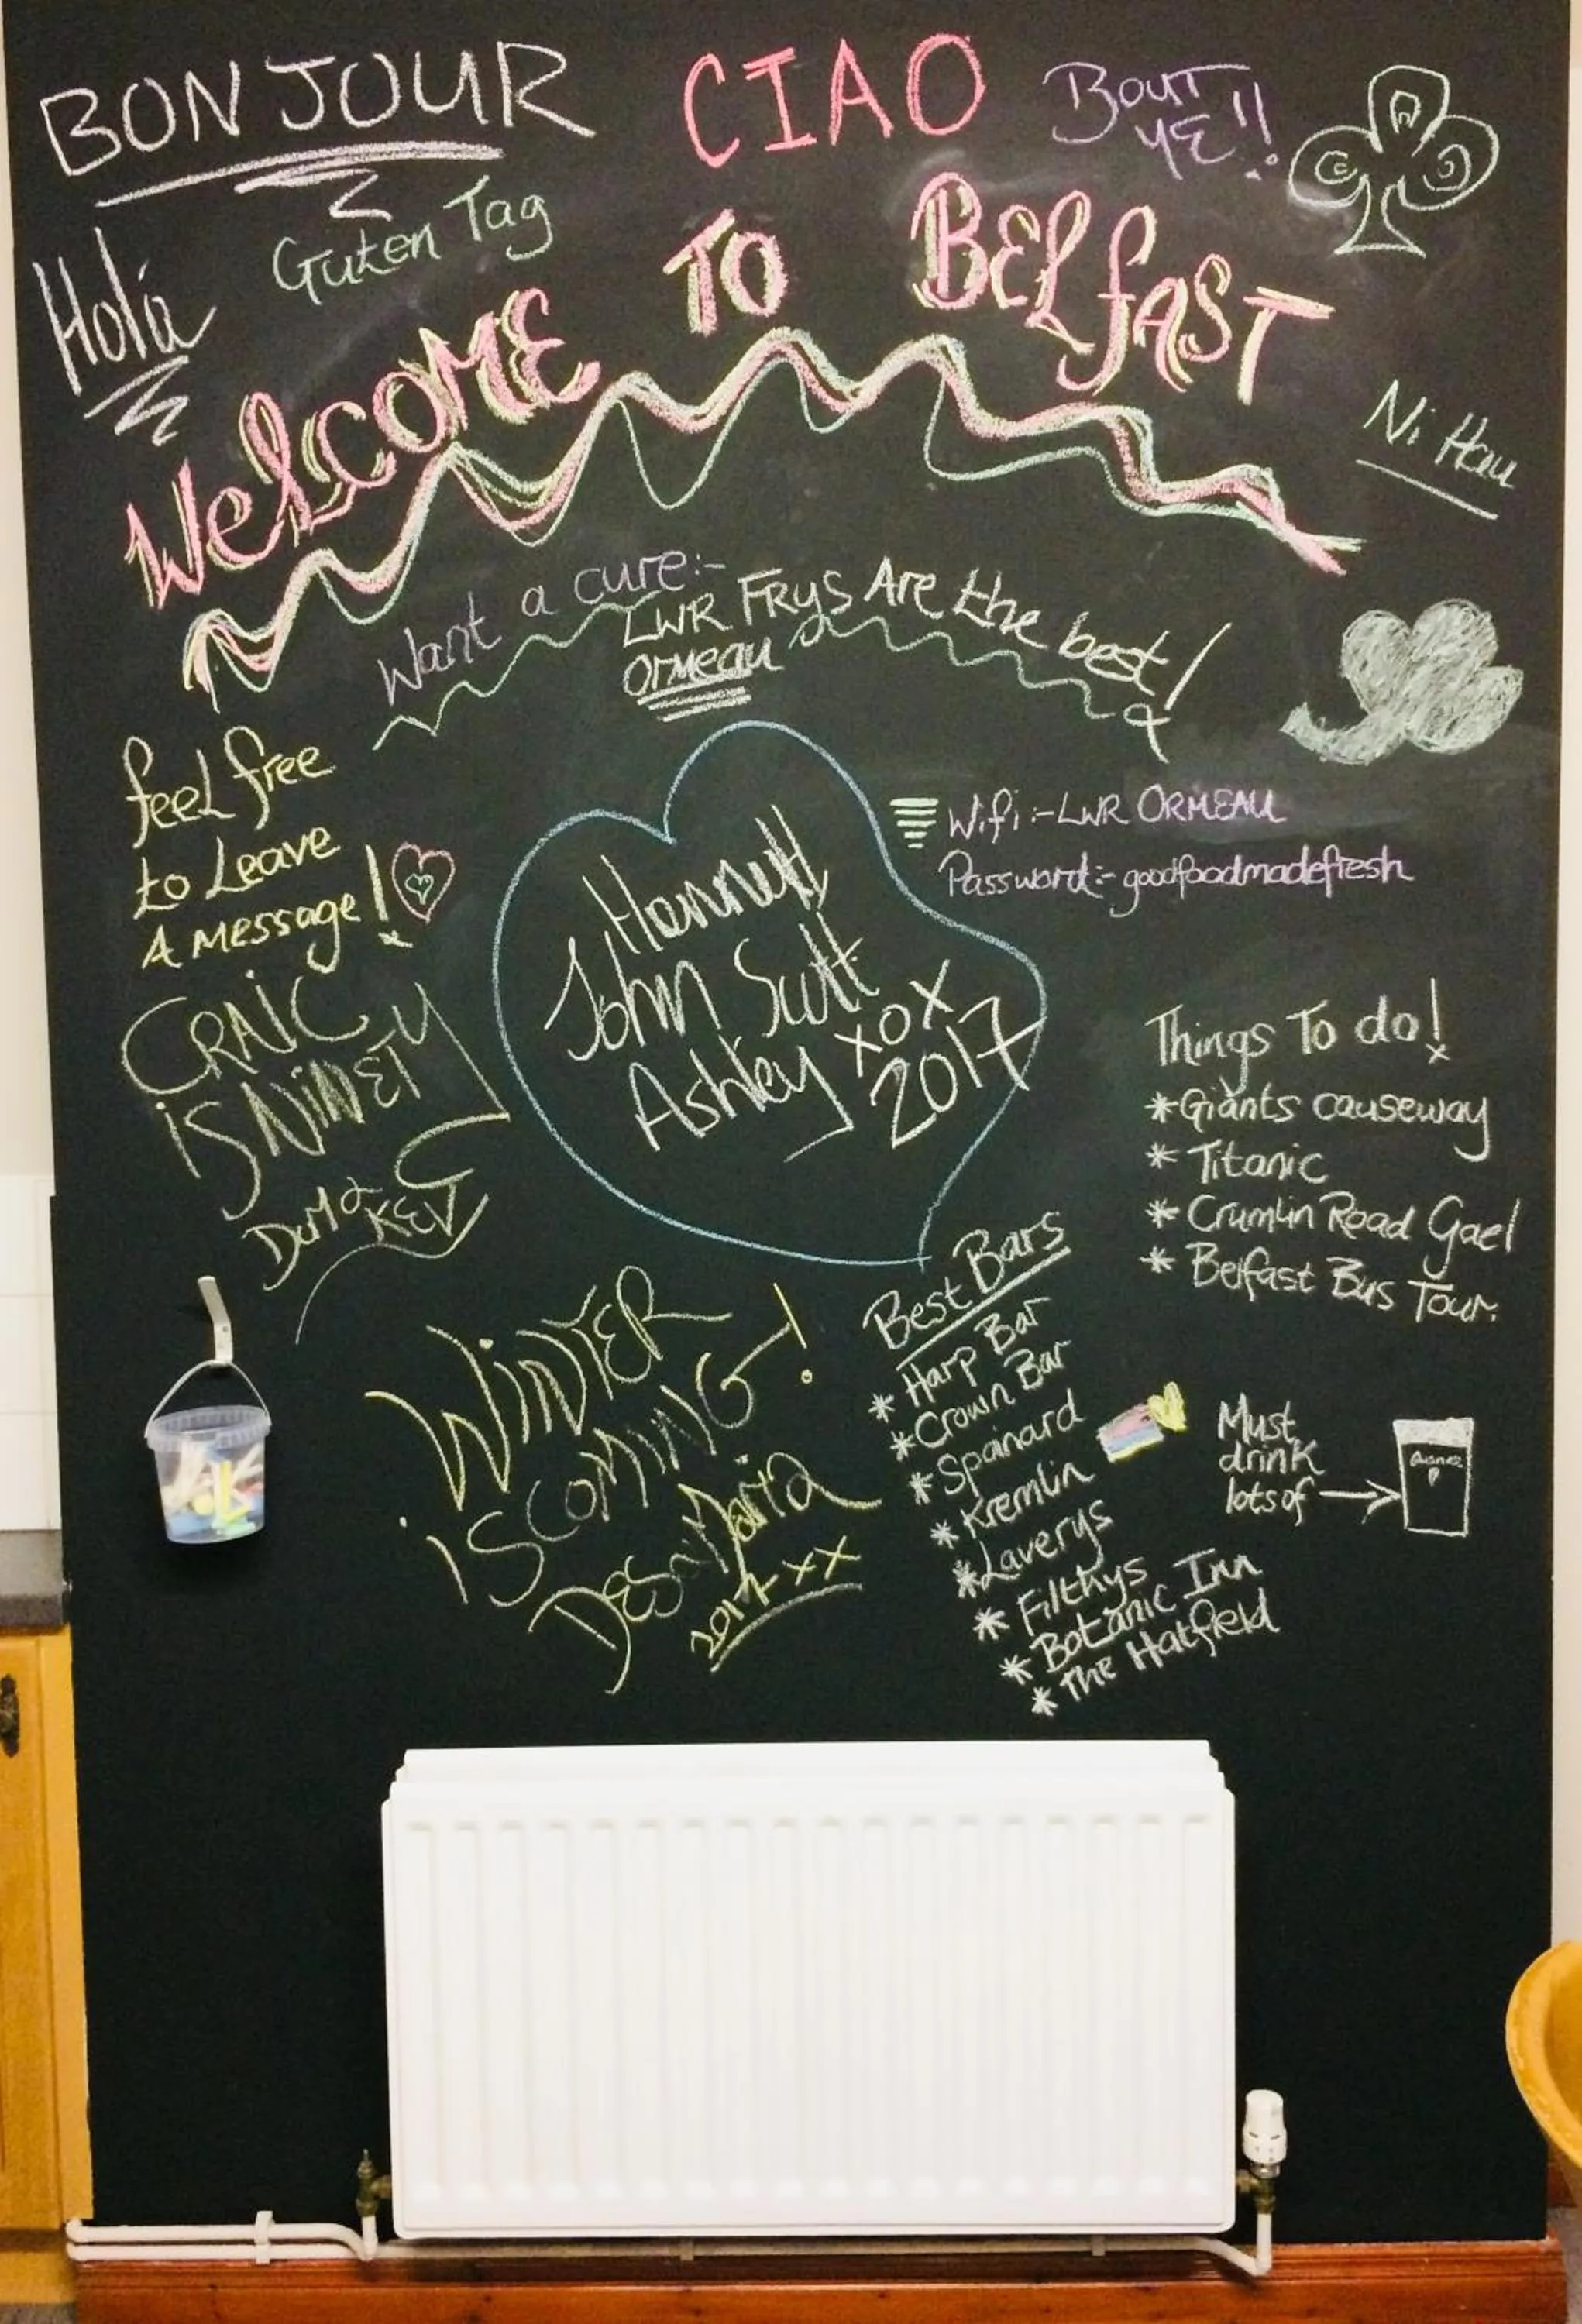 BONJOUR
CIAO
BOUT
YE!!
Guten Tag
Holá
WelCOME TO BELfAST
Ni Hau
Want a cure:-
LWR FRYS Are the best!
Ormeau
feel free
to Leave
A message!
Wifi:-LWR ORMEAU
Password:- goodfoodmadefresh
John Scott
Ashley xox
2017
CRAIC
iS NiNETY
KEV
Things To do!
*Giants causeway
* Titanic
* Crumlin Road Gael
* Belfast Bus Tour.
WiNTER
iS COMiNG!
Maria
2017 xx
Best Bars
* Harp Bar
* Crown Bar
* Spainard
* Kremlin
* Laverys
* Filthys
* Botanic Inn
* The Hatfield
Must
drink
lots of